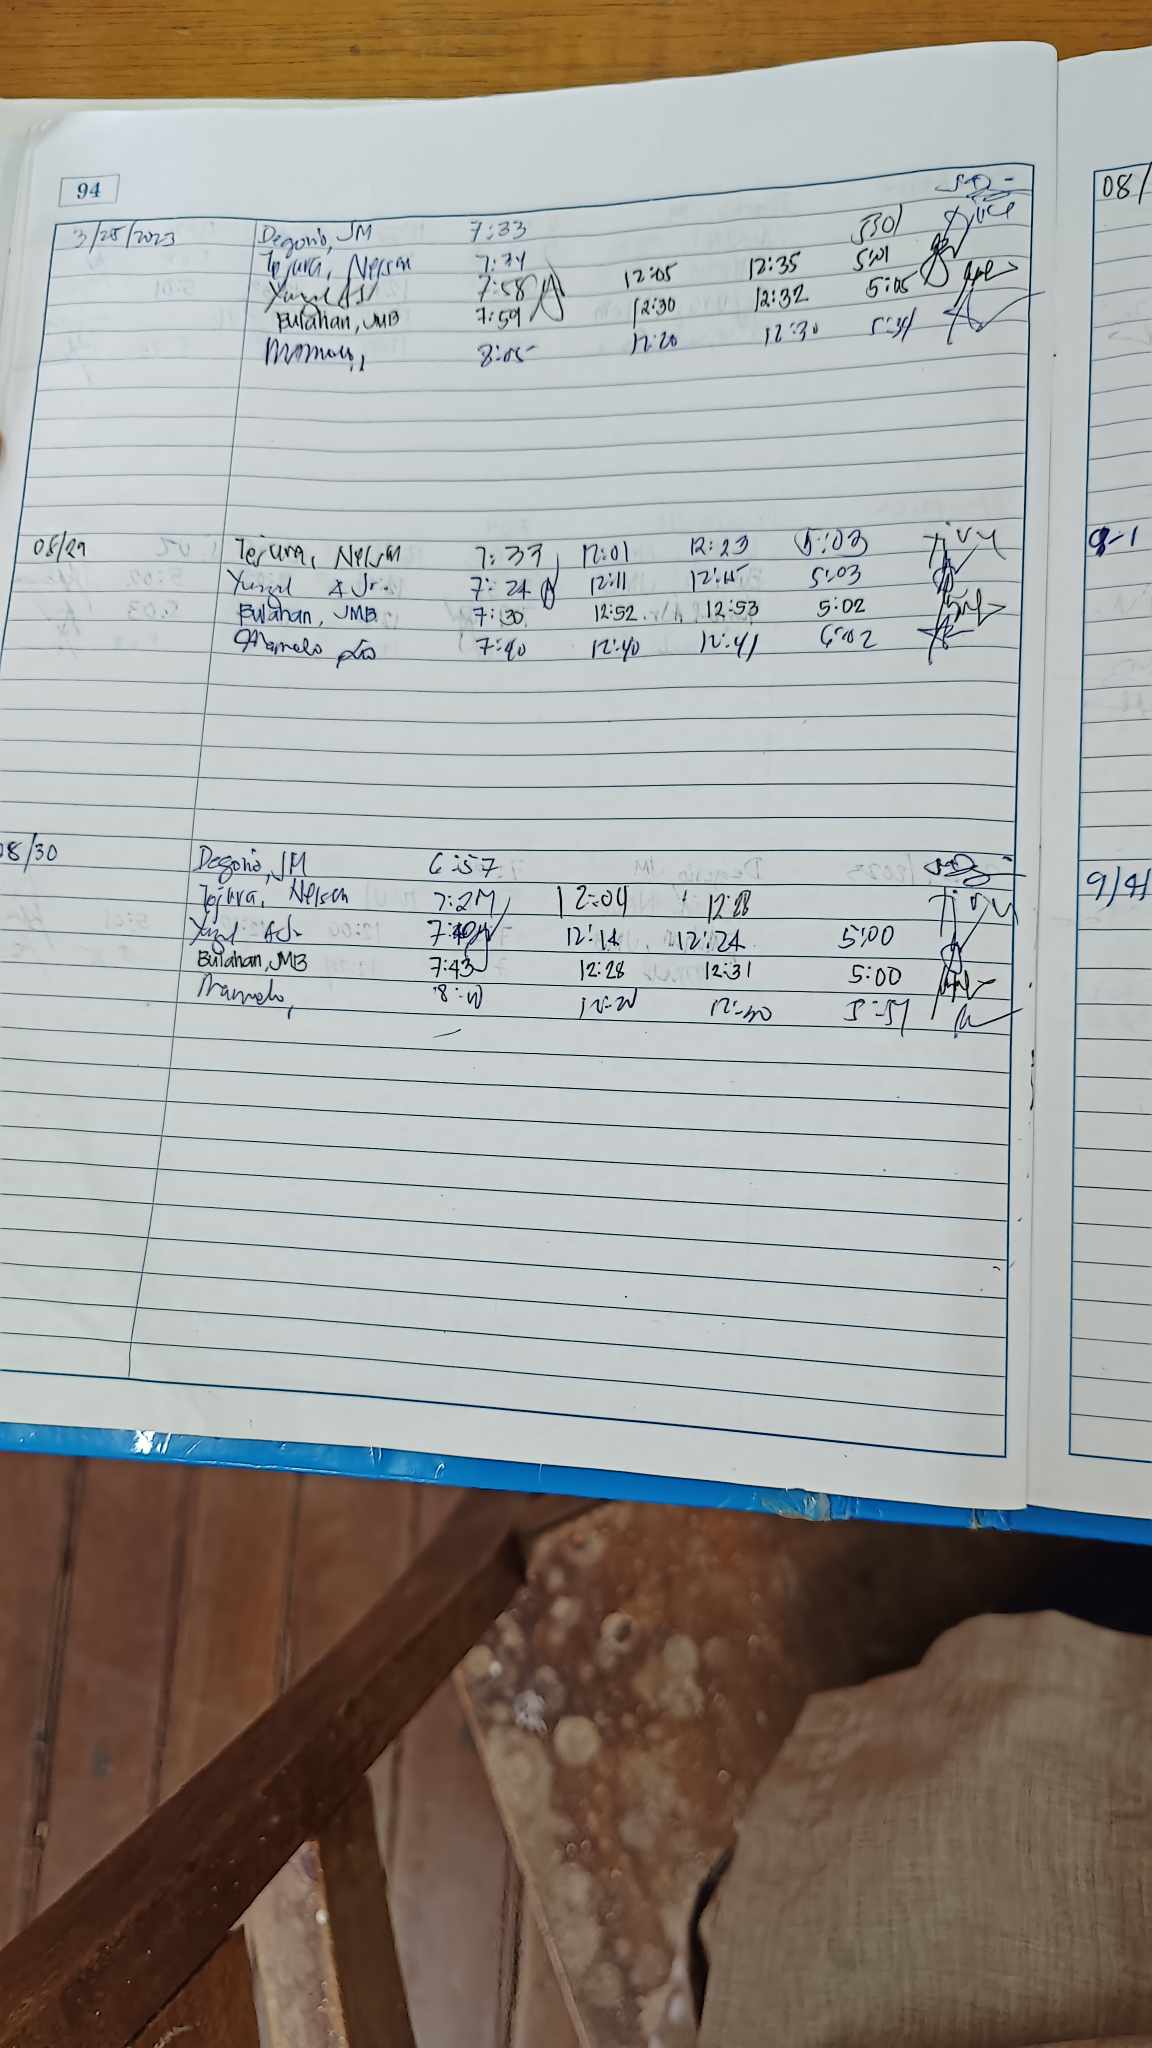 94
3/28/2023 Degorio, JM 7:33
Tejura, Nelson 7:34 5:01
Yungl AJr 7:58 12:05 12:35 5:01
Bulahan, JMB 7:59 12:30 12:32 5:05
Mamelo, 8:05 12:20 12:30
08/29 Tejura, Nelson 7:33 12:01 12:23 5:03
A Jr. 7:24 12:11 12:15 5:03
Bulahan, JMB 7:30 12:52 12:53 5:02
Mamelo 7:40 12:40 12:41 5:02
08/30 Degorio, JM 6:57
Tejura, Nelson 12:04 12:28
AJr 12:14 12:24 5:00
Bulahan, JMB 7:43 12:28 12:31 5:00
Mamelo, 12:20 12:30
08/
9-1
9/4/